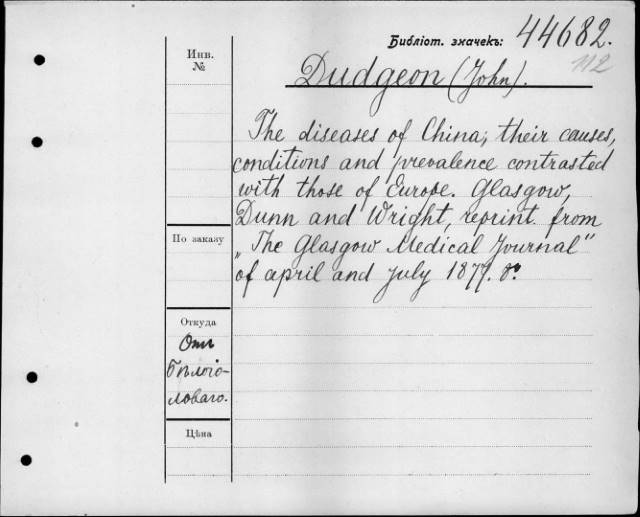 Библіот. значекъ: 44682.
112
Инв.
№
Dudgeon (John).
The diseases of China; their causes,
conditions and prevalence contrasted
with those of Europe. Glasgow,
Dunn and Wright, reprint. from
„The Glasgow Medical Journal"
of april and july 1877. 8º
По заказу
Откуда
Отъ
Бѣлого-
ловаго.
Цѣна